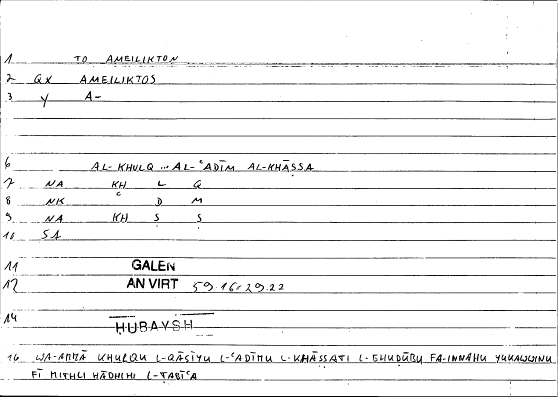 1 TO AMEILIKTON
2 QX AMEILIKTOS
3 Y A-
6 AL-KHULQ ... AL-ʿADĪM AL-KHĀṢṢA
7 NA KH L Q
8 NK ʿ D M
9 NA KH Ṣ Ṣ
10 SA
11 GALEN
12 AN VIRT 59.16-29.22
14 HUBAYSH
16 WA-AMMĀ KHULQU L-QĀSIYU L-ʿADĪMU L-KHĀṢṢATI L-GHUḌŪBU FA-INNAHU YUKAWWINU
FĪ MITHLI HĀDHIHI L-ṬABĪʿA